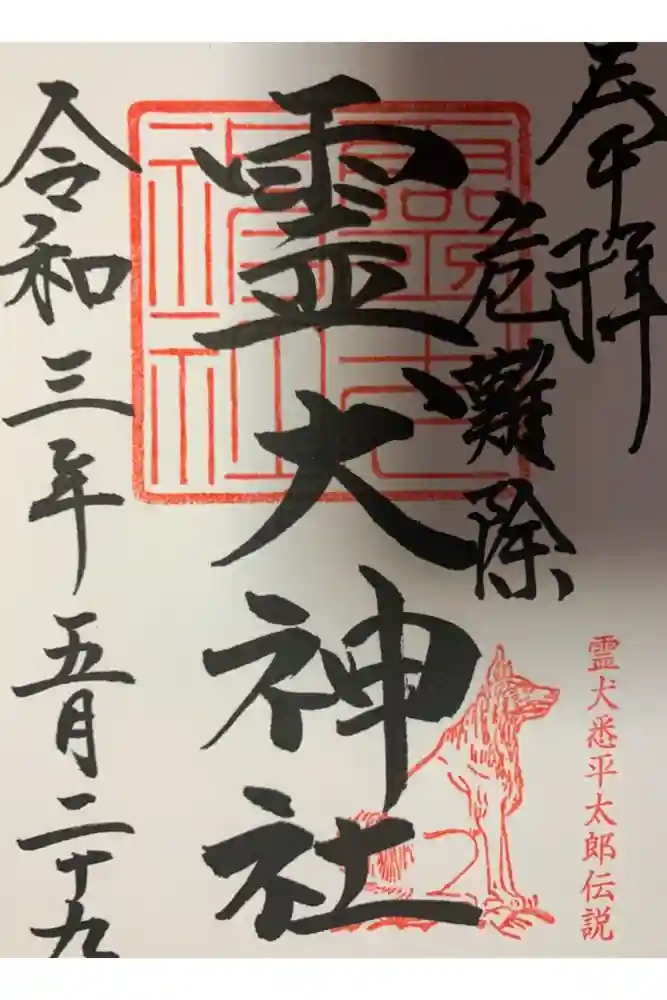 奉拝
危難除
霊犬神社
霊犬悉平太郎伝説
令和三年五月二十九